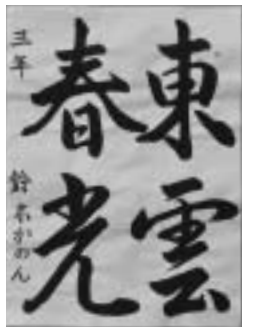 東雲
春光
三年 鈴木かのん